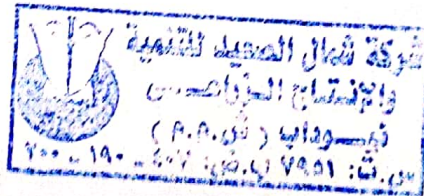 شركة شمال الصعيد للتنمية
والإنتاج الزراعى
نيـــوداب ( ش.م.م )
س.ت: ١٥٩٧ ب.ض: ٢٠٤ - ١٩٠ - ٢٠٠